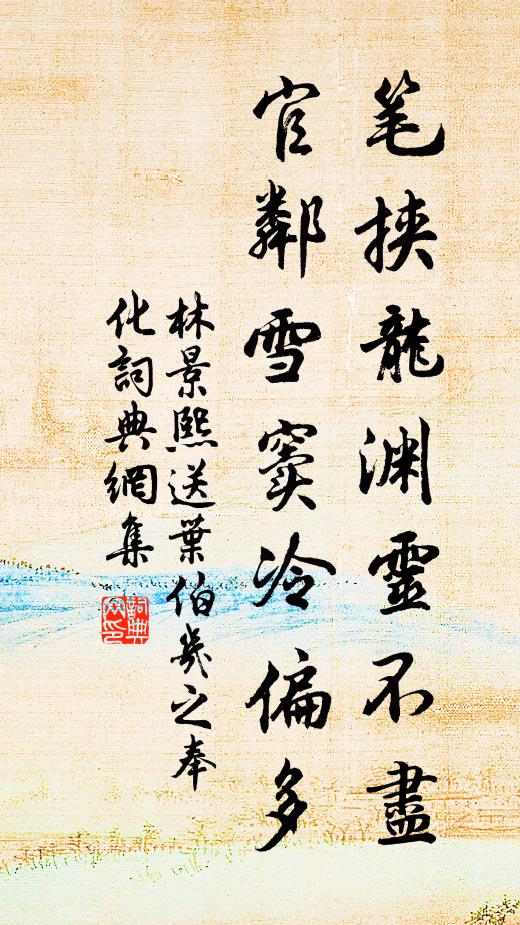 笔挟龍渊靈不盡
官鄰雪竇冷偏多
林景熙送葉伯幾之奉
化詞典網集